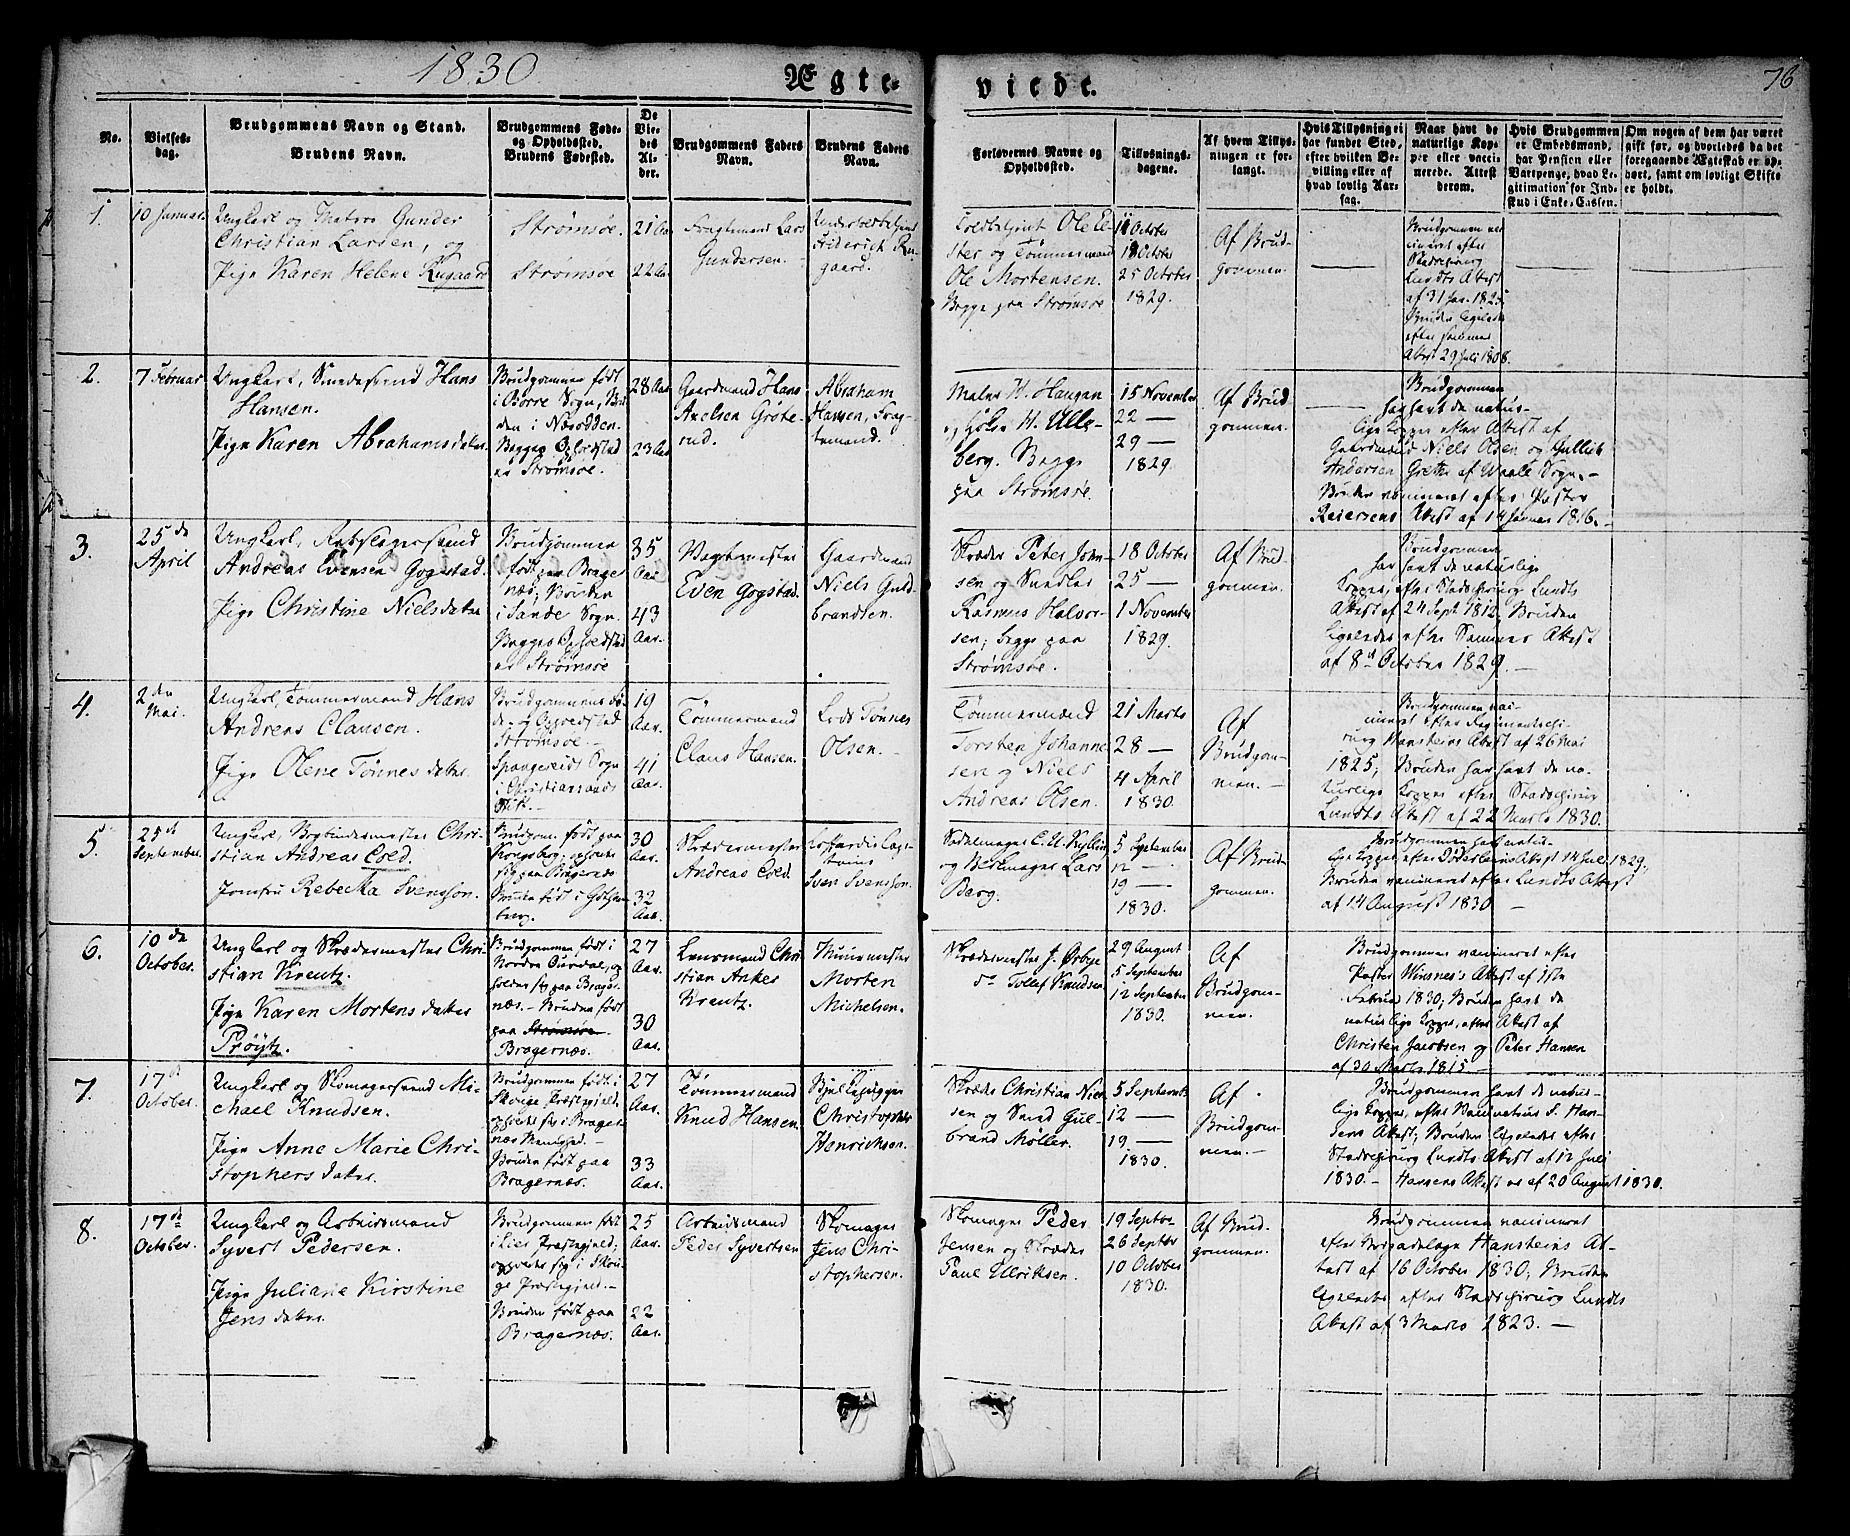 1830
Ægte-
viede.
76
No.
Vielses-
dag.
Brudgommens Navn og Stand.
Brudens Navn.
Brudgommens Føde-
og Opholdssted.
Brudens Fødested.
De
Vie-
des
Al-
der.
Brudgommens Faders
Navn.
Brudens Faders
Navn.
Forlovernes Navne og
Opholdssted.
Tillysnings-
dagene.
Af hvem Tillys-
ningen er for-
langt.
Hvis Tillysning ei
har fundet Sted,
efter hvilken Be-
villing eller af
hvad lovlig Aar-
sag.
Naar havt de
naturlige Kop-
per eller vacci-
nerede. Attest
derom.
Hvis Brudgommen
er Embedsmand,
har Pension eller
Vartpenge, hvad Le-
gitimation for Ind-
skud i Enke-Cassen.
Om nogen af dem har været
gift før, og hvorledes da det
foregaaende Ægteskab er op-
hørt, samt om lovligt Skifte
er holdt.
1.
10 Januar.
Ungkarl og Matros Gunder
Christian Larsen, og
Pige Karen Helene Rugaard
Strømsøe.
Strømsøe
21 Aar
22 Aar
Fragtemand Lars
Gundersen.
Friderich Ru-
gaard.
Toldbetjent Ole El-
ster og Tømmermand
Ole Mortensen.
Begge paa Strømsøe
11 October
18 October
25 October
1829.
Af Brud-
gommen.
Brudgommen vac-
cineret efter
Stadschirurg
Lundts Attest
af 31 Jan. 1825
Bruden ligeledes
efter samme
Attest 29 Juli 1808.
2.
7 Februar
Ungkarl, Smedesvend Hans
Hansen.
Pige Karen Abrahamsdatter.
Brudgommen født
i Borre Sogn, Bru-
den i Næsodden.
Begges Opholdsted
er Strømsøe.
28 Aar
23 Aar
Gaardmand Hans
Abraham
Hansen, Frag-
temand.
Maler H. Haugen
og H. Ulle-
berg. Begge
paa Strømsøe.
15 November
22 —
29 —
1829.
Af Brud-
gommen.
Brudgommen
har havt de natur-
lige Kopper efter Attest af
Gaardmand Niels Olsen og Gullich
Andersen Grette af Waale Sogn. -
Bruden vaccineret efter Pastor
Reiersens Attest af 14 Januar 1816.
3.
25 de
April
Ungkarl, Rebslagersvend
Andreas Evensen Gogstad.
Pige Christine Nielsdatter
Brudgommen
født paa Brager-
næs; Bruden
i Sande Sogn.
Begges Opholdsted
er Strømsøe
35
Aar
43
Aar.
Vagtmester
Even Gogstad.
Gaardmand
Niels Guld-
brandsen.
Skræder Peter John-
sen og Snedker
Rasmus Halvor-
sen; begge paa
Strømsøe.
18 October
25 —
1 November
1829.
Af Brud-
gommen.
Brudgommen
har havt de naturlige
Kopper, efter Stadschirurg Lundts
Attest af 24 Sept. 1812. Bruden
ligeledes efter Sammes Attest
af 8de October 1829. —
4.
2den
Mai.
Ungkarl, Tømmermand Hans
Andreas Clausen.
Pige Olene Tønnesdatter
Brudgommens Fø-
de- og Opholdsted
Strømsøe.
Spangereids Sogn
i Christiansands
Stift. —
19
Aar.
41
Aar.
Tømmermand
Claus Hansen.
Lods Tønnes
Olsen. -
Tømmermænd
Torsten Johanne-
sen og Niels
Andreas Olsen.
21 Marts
28 —
4 April
1830.
Af
Brudgom-
men. —
Brudgommen vac-
cineret efter Regimentschi-
rurg Hansteins Attest af 26 Mai
1825; Bruden har havt de na-
turlige Kopper efter Stadschirurg
Lundts Attest af 22 Marts 1830.
5.
25de
September
Ungkarl, Bogbindermester Chri-
stian Andreas Coed.
Jomfru Rebecka Svensson.
Brudgom. født paa
Kongsberg, opholder
sig paa Bragernæs
Bruden født i Gothen-
burg.
30
Aar.
32
Aar.
Skrædermester
Andreas Coed.
Sven Svensson.
Sadelmager C. U. Kylling
og Bødkermager Lars
Berg.
5 September
12 —
19 —
1830.
Af Brud-
gommen.
Brudgommen havt natur-
lige Kopper, efter Døderleins Attest 14 Juli 1829.
Bruden vaccineret efter Lundts Attest
af 14 August 1830 —
6.
10 de
October.
Ungkarl og Skrædermester Chri-
stian Kreutz.
Pige Karen Mortensdatter
Prøytz.
Brudgommen født i
Nordre Ourdal, op-
holder sig paa Brager-
næs. — Bruden født
paa Strømsøe
Bragernæs.
27
Aar.
30
Aar.
Lensmand Chri-
stian Anker
Kreutz.
Muurmester
Morten
Michelsen.
Skrædermester J. Ørbye
do Tollef Knudsen
29 August
5 September
12 September
1830.
Af
Brudgom-
men.
Brudgommen vaccineret efter
Pastor Winsnes's Attest af 1ste
Februar 1830; Bruden havt de
naturlige Kopper, efter Attest af
Christen Jacobsen og Peter Hansen
af 30 Marts 1815 —
7.
17de
October.
Ungkarl og Skomagersvend Mi-
chael Knudsen.
Pige Anne Marie Chri-
stophersdatter.
Brudgommen født i
Skoger Præstegjeld,
opholdt sig i Brager-
næs Menighed. —
Bruden født paa
Bragernæs.
27
Aar.
33
Aar.
Tømmermand
Knud Hansen.
Christopher
Henrichsen.
Skræder Christian Niel-
sen og Smed Gul-
brand Møller.
5 September
12 —
19 —
1830.
Af
Brudgom-
men.
Brudgommen havt de natur-
lige Kopper, efter Vaccinateur S. Han-
sens Attest; Bruden ligeledes efter
Stadschirurg Lundts Attest af 12 Juli
1830. - Hansens Attest er af 20 August 1830.
8.
17de
October.
Ungkarl og Arbeidsmand
Syvert Pedersen.
Pige Juliane Kirstine
Jensdatter.
Brudgommen født
i Lier Præstegjeld;
opholdt sig i Sko-
ger Præstegjeld. —
Bruden født paa
Bragernæs.
25
Aar.
22
Aar.
Arbeidsmand
Peder Syvertsen
Skomager
Jens Chri-
stophersen.
Skomager Peder
Jensen og Skræder
Paul Ulriksen.
19 Septbr
26 Septbr
10 October
1830.
Af Brud-
gommen.
Brudgommen vaccineret
efter Brigadelæge Hansteins At-
test af 16 October 1830; Bruden
ligeledes efter Stadschirurg Lundts
Attest af 3 Marts 1823. —